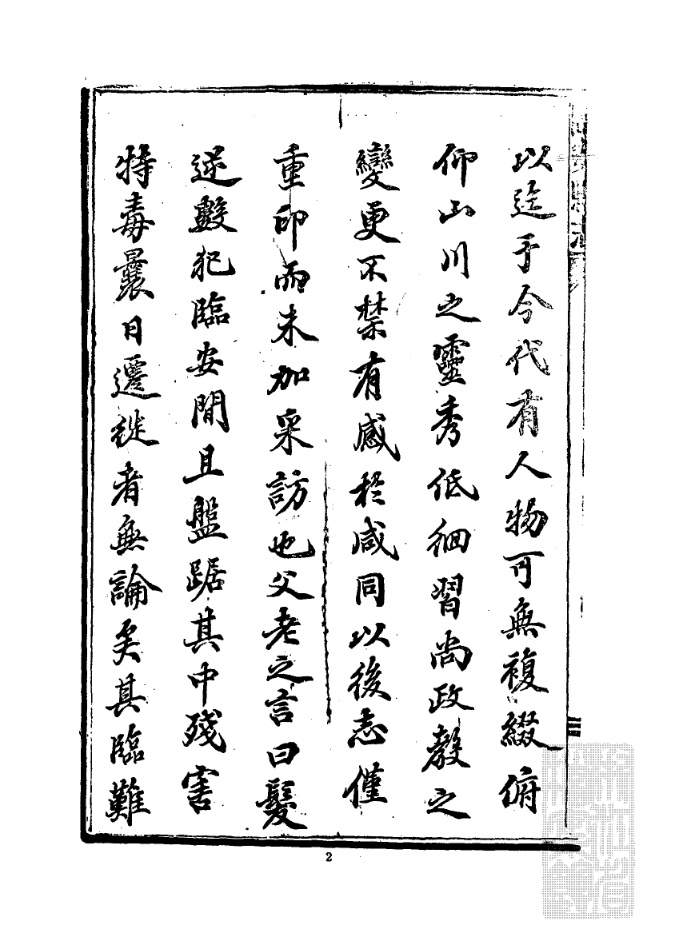 以迄于今代有人物可無複綴俯
仰山川之靈秀低徊習尚政教之
變更不禁有感於咸同以後志僅
重印而未加采訪也父老之言曰髮
逆數犯臨安間且盤踞其中殘害
特毒曩日遷徙者無論矣其臨難
2